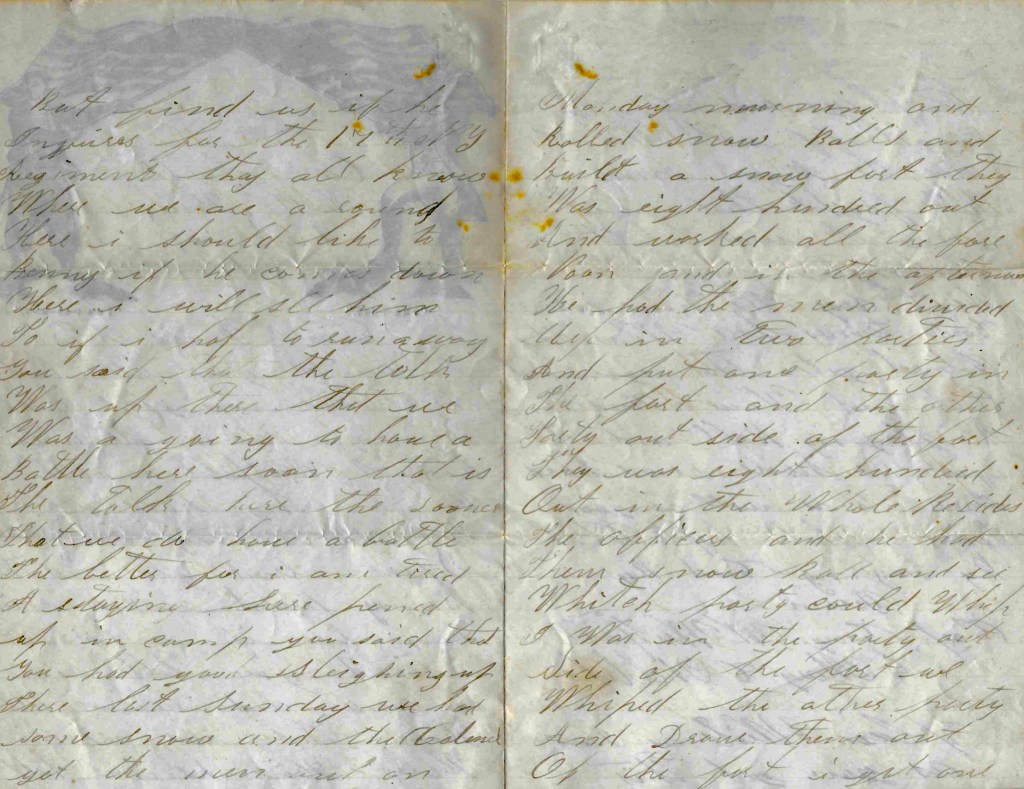 But find us if he
Inquires for the 17th N Y
Regiment thay all know
Where we are a round
Here i should like to
Benny if he comes down
Here i will see him
To if i haf to run a way
You said that the talk
Was up there that we
Was a going to have a
Battle here soon that is
The talk here the sooner
That we do have a battle
The better for i am tired
A staying here pened
up in camp you said that
You had good sleighing up
There last sunday we had
some snow and the Colonel
got the men out on
Monday morning and
Rolled snow Balls and
Built a snow fort they
Was eight hundred out
And worked all the fore
Noon and in the afternoon
He had the men divided
Up in two parties
And put one party in
The fort and the other
Party out side of the fort
They was eight hundred
Out in the Whole Besides
The officers and he had
Them snow Ball and see
Whitch party could Whip
I Was in the party out
Side of the fort we
Whiped the other party
And Drove them out
Of the fort i got one